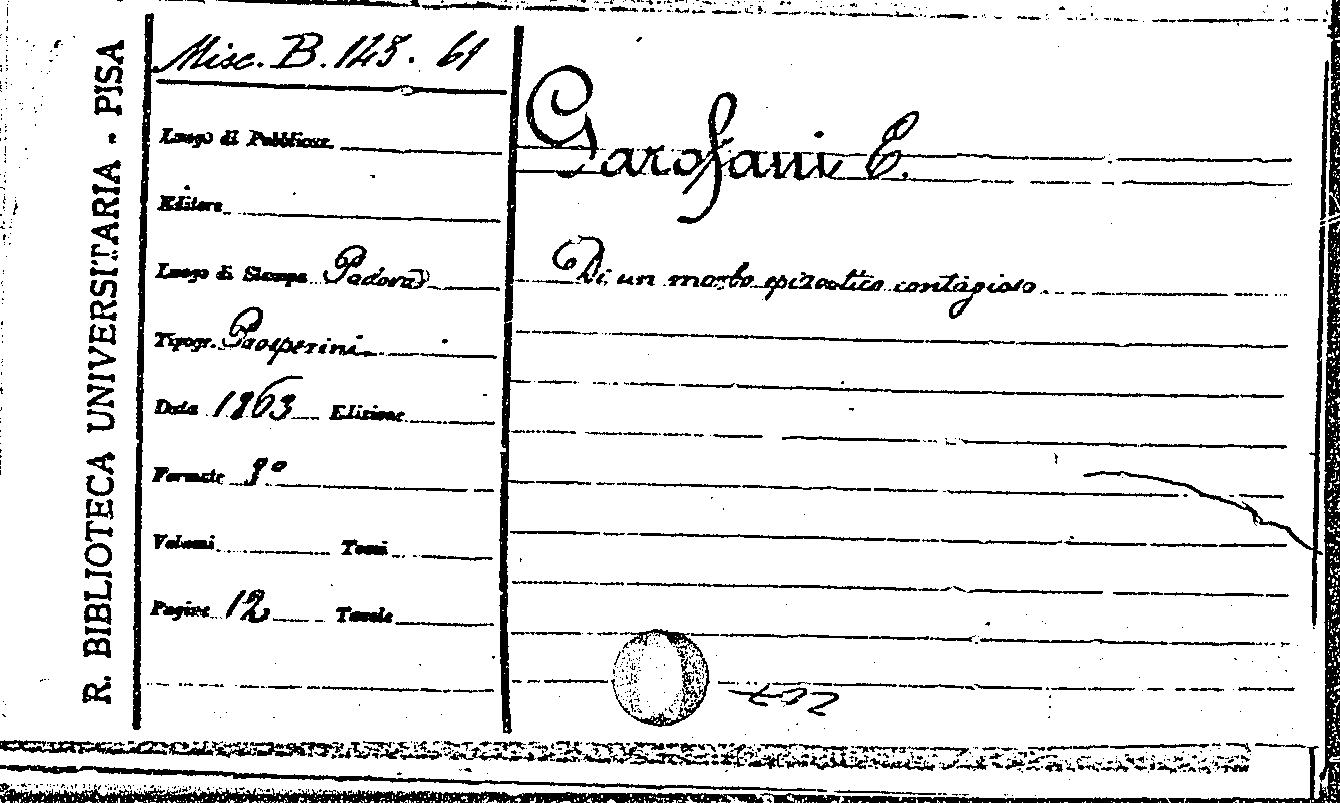 R. BIBLIOTECA UNIVERSITARIA - PISA
Misc. B. 148. 61
Luogo di Pubblicaz.
Editore
Luogo di Stampa Padova
Tipogr. Prosperini
Data 1863 Edizione
Formato 8°
Volumi Tomi
Pagine 12 Tavole
Garofani E.
Di un morbo epizootico contagioso.